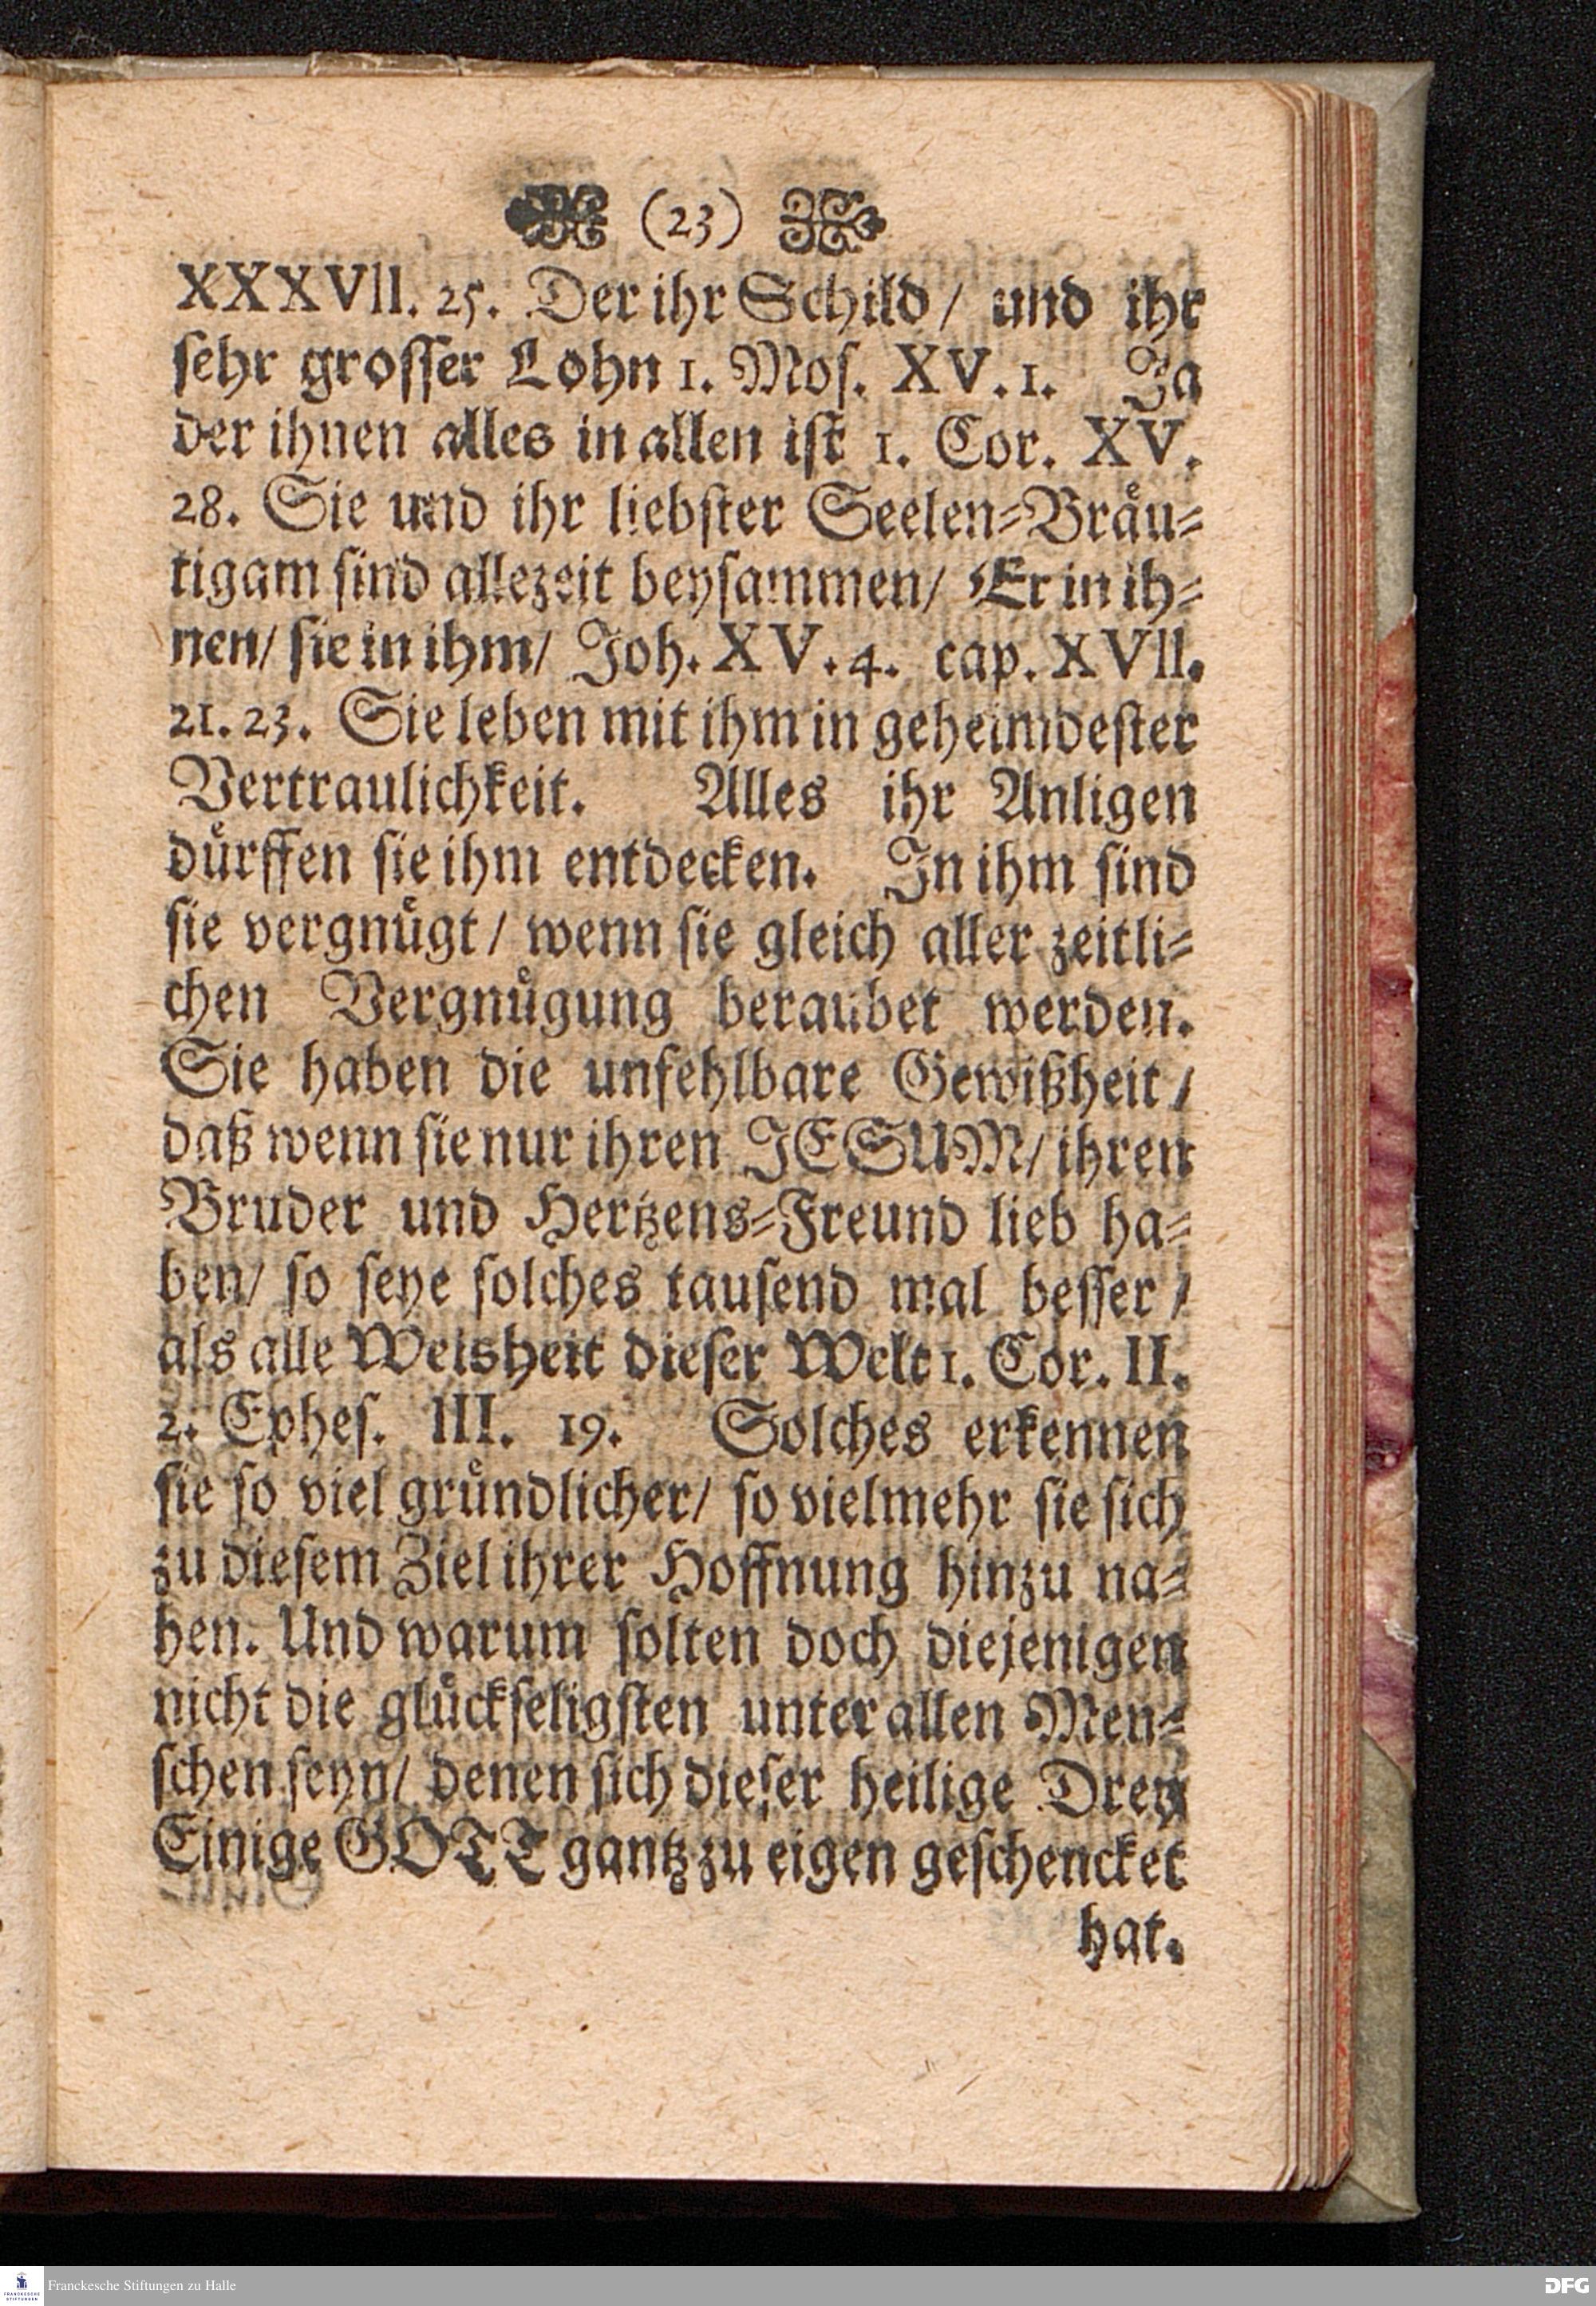 (23)
XXXVII. 25. Der ihr Schild / und ihr
sehr grosser Lohn 1. Mos. XV. 1. Ja
der ihnen alles in allen ist 1. Cor. XV.
28. Sie und ihr liebster Seelen-Bräu-
tigam sind allezeit beysammen/ Er in ih-
nen/ sie in ihm/ Joh. XV. 4. cap. XVII.
21. 23. Sie leben mit ihm in geheimdester
Vertraulichkeit. Alles ihr Anligen
dürffen sie ihm entdecken. In ihm sind
sie vergnügt / wenn sie gleich aller zeitli-
chen Vergnügung beraubet werden.
Sie haben die unfehlbare Gewißheit /
daß wenn sie nur ihren JESUM/ ihren
Bruder und Hertzens-Freund lieb ha-
ben/ so seye solches tausend mal besser /
als alle Weisheit dieser Welt 1. Cor. II.
2. Ephes. III. 19. Solches erkennen
sie so viel gründlicher/ so vielmehr sie sich
zu diesem Ziel ihrer Hoffnung hinzu na-
hen. Und warum solten doch diejenigen
nicht die glückseligsten unter allen Men-
schen seyn/ denen sich dieser heilige Drey
Einige GOTT gantz zu eigen geschencket
hat.
FRANCKESCHE STIFTUNGEN
Franckesche Stiftungen zu Halle
DFG